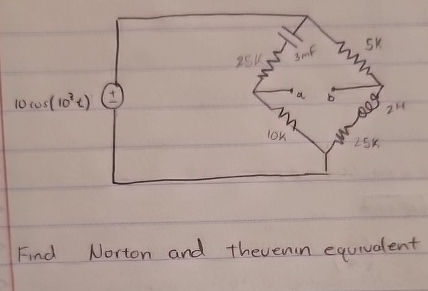 5K
25K
3mF
a
b
10 cos(10³t)
±
2H
10K
25K
Find Norton and thevenin equivalent